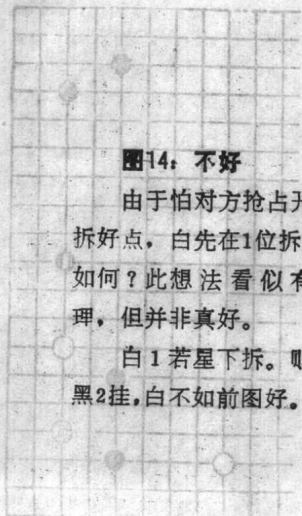 图14：不好
由于怕对方抢占
拆好点，白先在1位拆
如何？此想法看似有
理，但并非真好。
白1若星下拆。
黑2挂，白不如前图好。